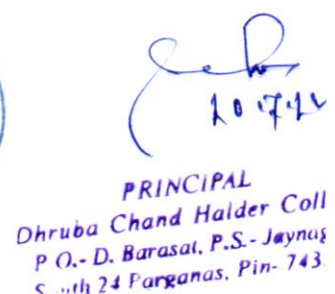 PRINCIPAL
Dhruba Chand Halder Coll
P.O.- D. Barasat, P.S.- Jaynag
South 24 Parganas, Pin- 743